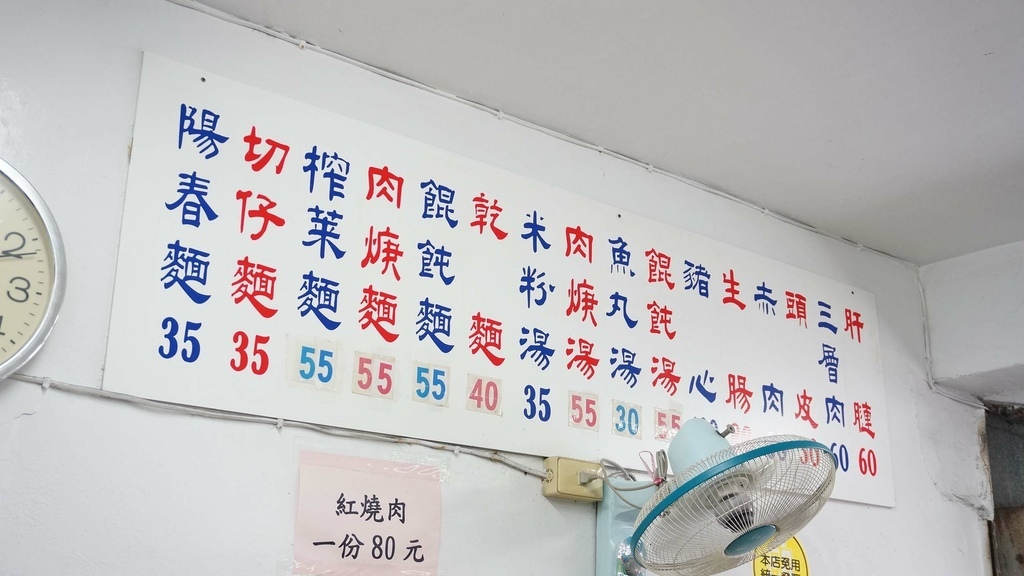 陽春麵 35
切仔麵 35
榨菜麵 55
肉焿麵 55
餛飩麵 55
乾麵 40
米粉湯 35
肉焿湯 55
魚丸湯 30
餛飩湯 55
豬心
生腸
赤肉
頭皮
三層肉 60
肝膤 60
紅燒肉
一份80元
2
3
本店免用